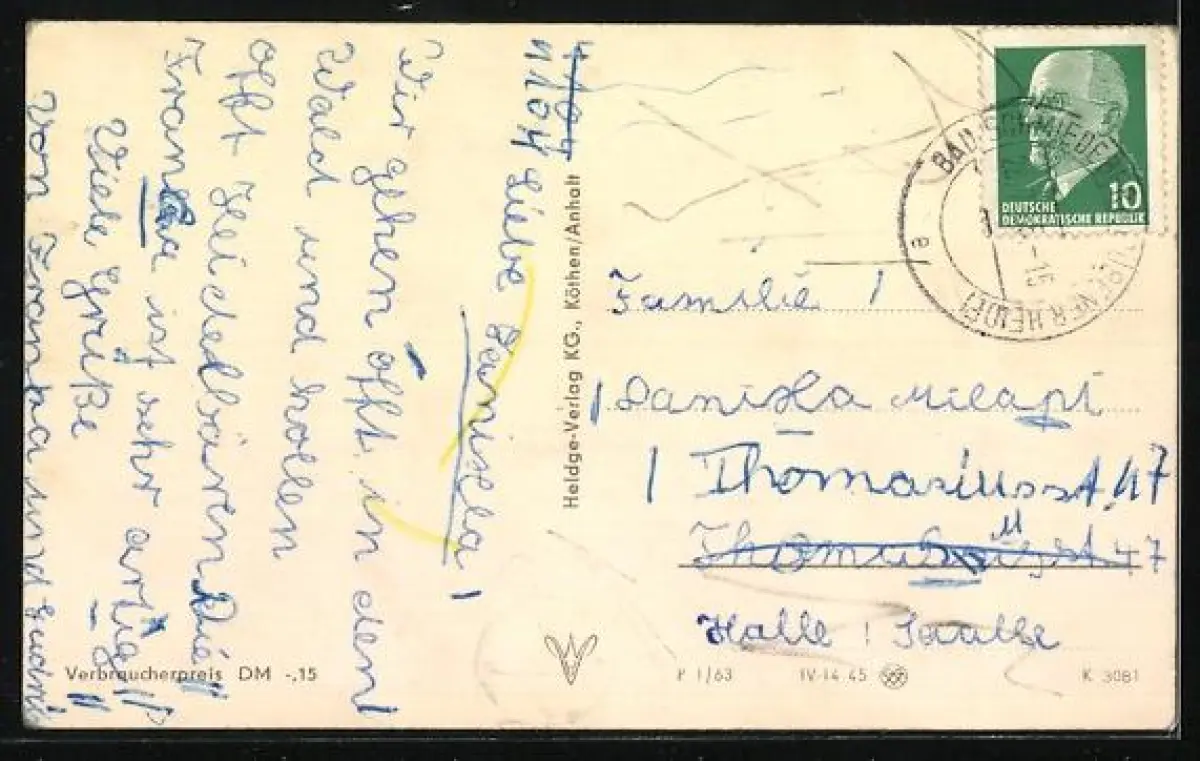 4104 Liebe Daniela!
Wir gehen oft in den
Wald und holen
oft Heidelbären. Die
Franka ist sehr artig!!
Viele Grüße
von Franka und
Heldge-Verlag KG., Köthen/Anhalt
Verbraucherpreis DM -,15
DEUTSCHE
DEMOKRATISCHE REPUBLIK
10
BAD SCHMIEDE
-15
e
Familie !
Daniela
Thomasiusst. 47
47
Halle ! Saalle
P 1/63 IV-14 45 K 3081